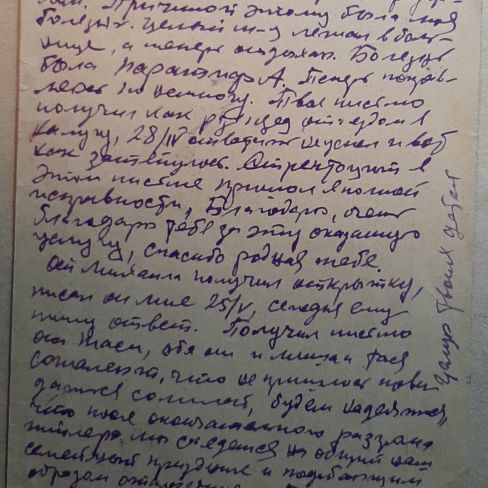 Причиной этому была моя
болезнь. Целый м-ц лежал в боль-
нице, а теперь отдыхаю. Болезнь
была паратиф А. Теперь поправ-
ляюсь по немногу. Твое письмо
получил как раз перед от'ездом в
Калугу, 28/IV ответить не успел и вот
как затянулось. Открытки в
этом письме пришли в полной
исправности, благодарю, очень
благодарю тебе за эту оказанную
услугу, спасибо родная тебе.
От Михаила получил открытку,
писал он мне 25/V, сегодня ему
пишу ответ. Получил письмо
от Таси, оба они и Миша и Тася
сожалеют, что не пришлось нови
даться со мной, будем надеяться,
что после окончательного разгрома
гитлера мы съедемся на общий наш
семейный праздник и подобающим
образом
Целую Твоих детей